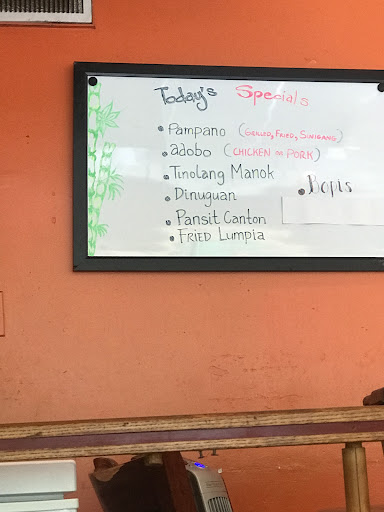 Today's Specials
• Pampano (GRILLED, FRIED, SINIGANG)
• adobo (CHICKEN or PORK)
• Tinolang Manok
• Dinuguan
• Pansit Canton
• FRIED Lumpia
• Bopis